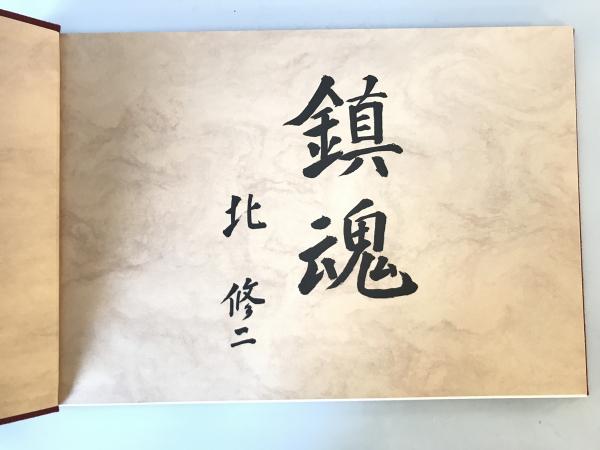 鎮魂
北修二